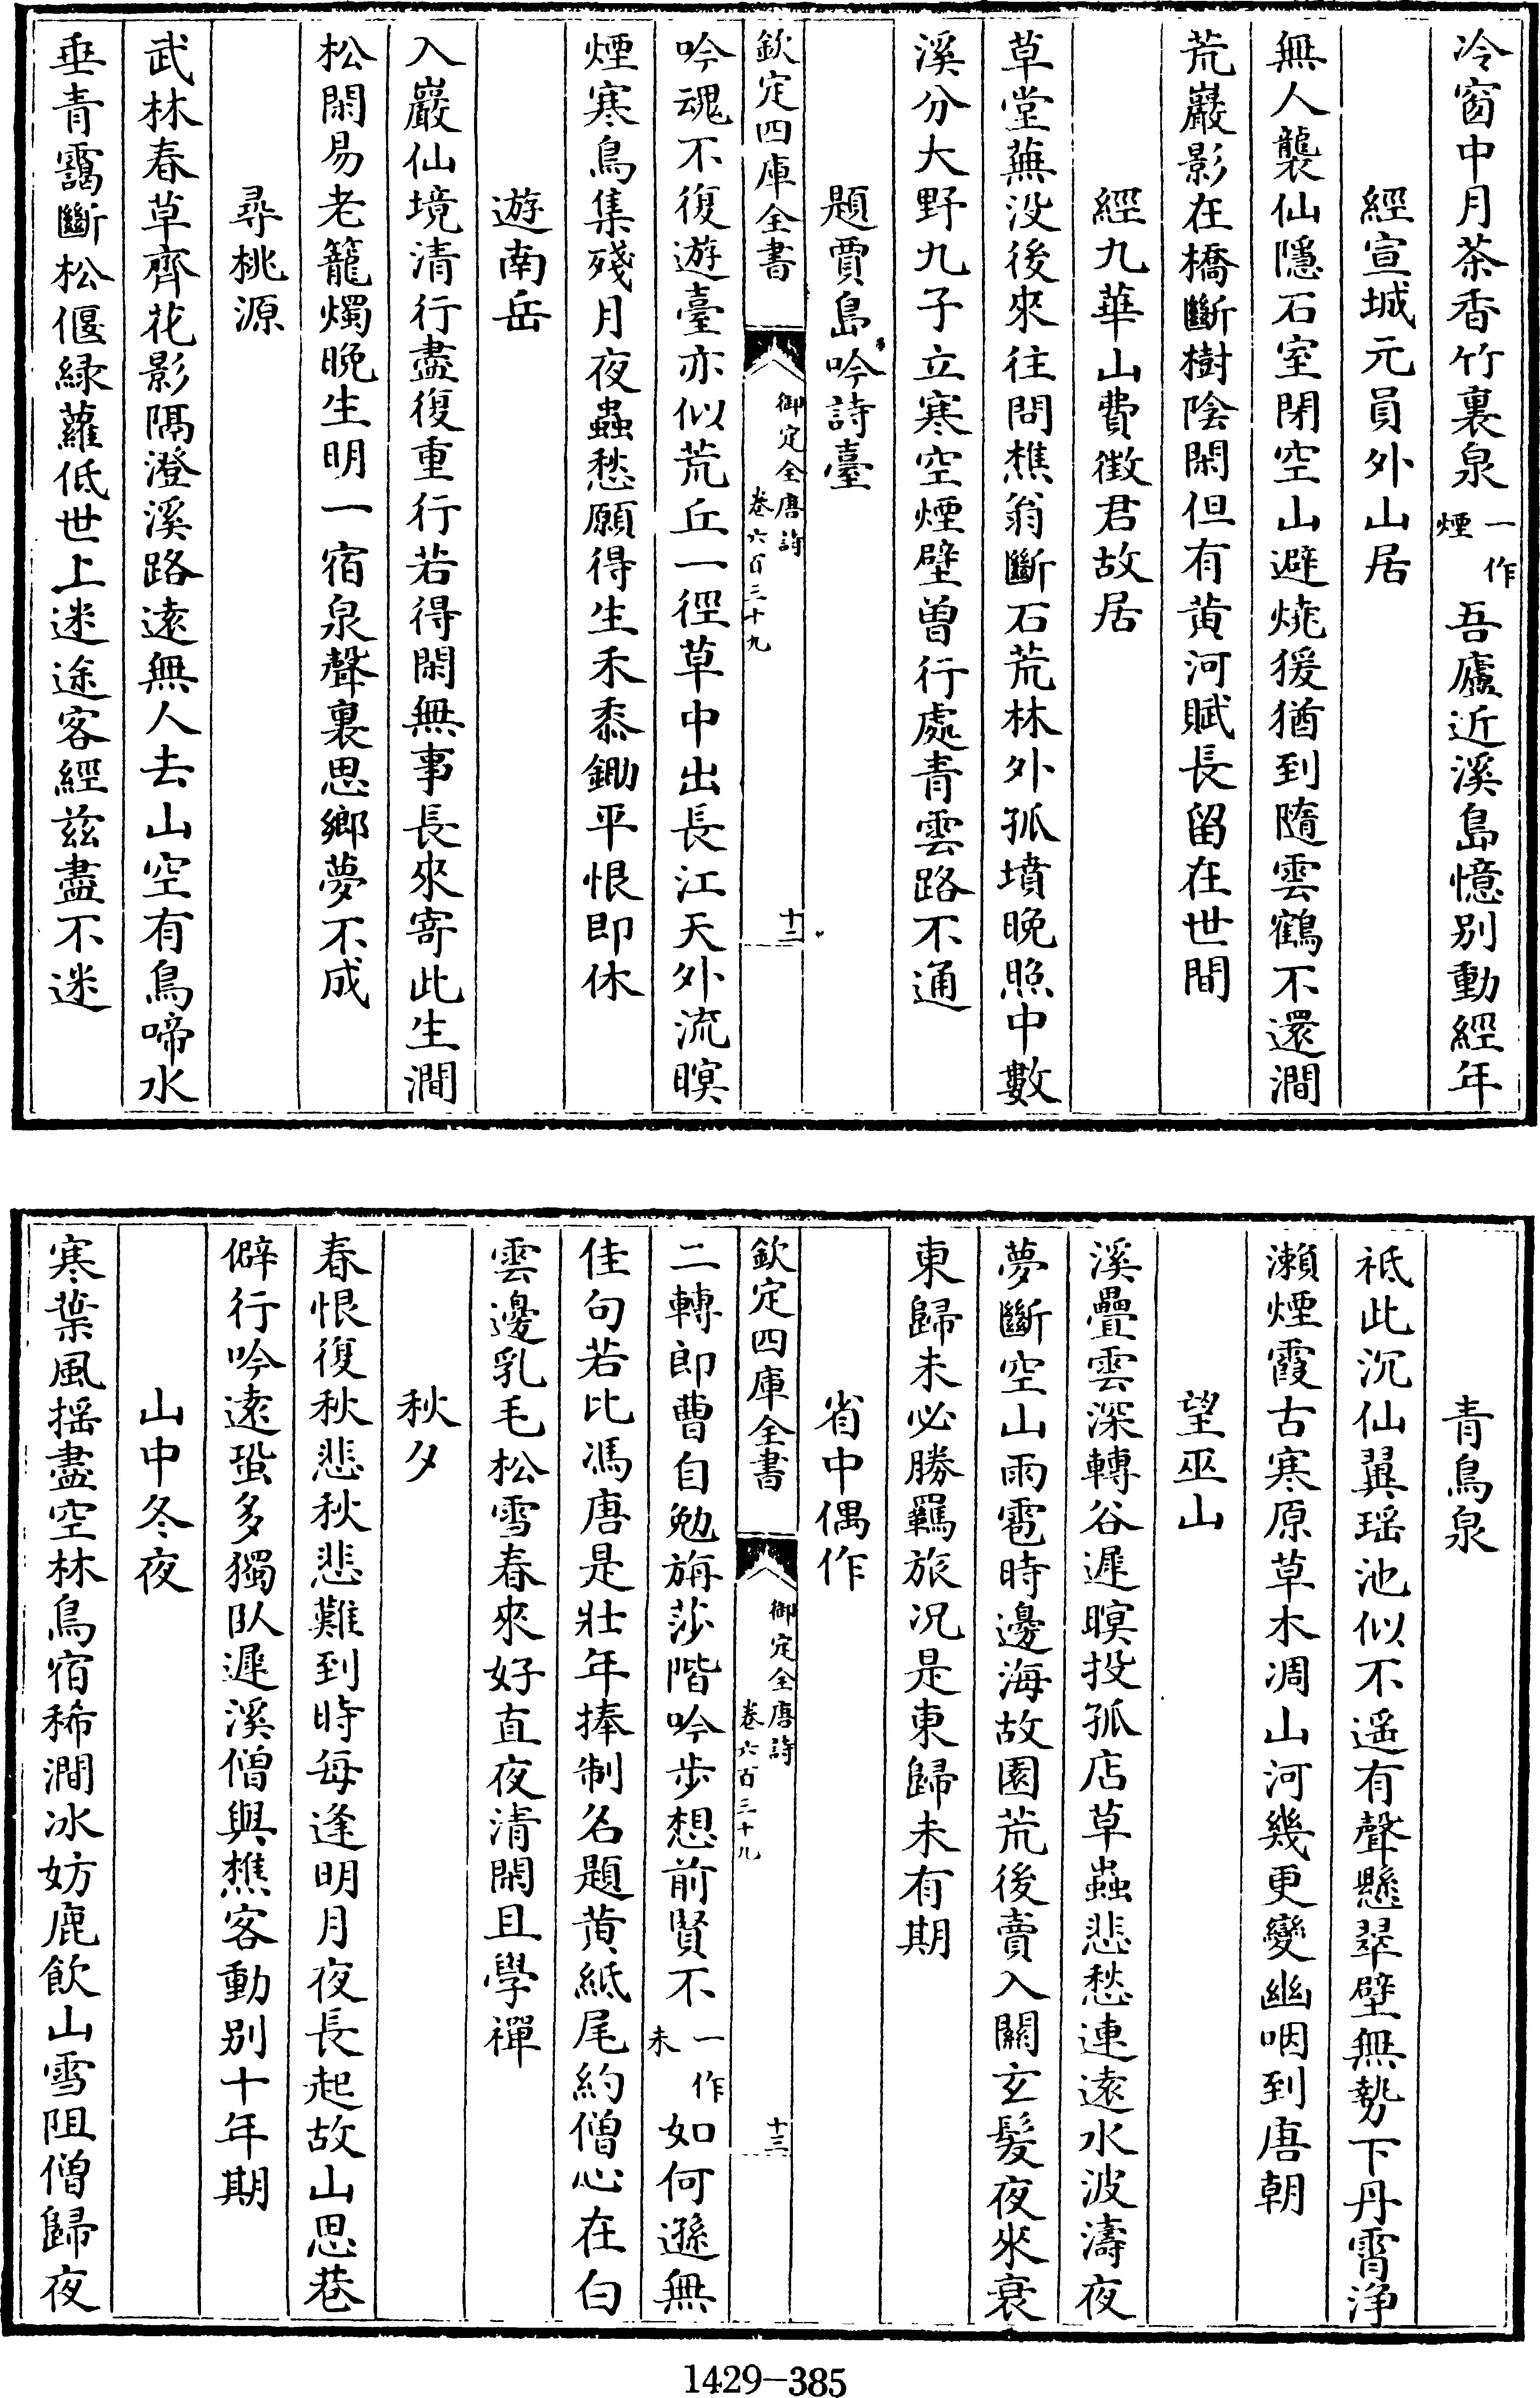 冷窗中月茶香竹裏泉一作煙吾廬近溪島憶别動經年
經宣城元員外山居
無人襲仙隱石室閉空山避燒猨猶到隨雲鶴不還澗
荒巖影在橋斷樹陰閑但有黄河賦長留在世間
經九華山費徵君故居
草堂蕪没後來往問樵翁斷石荒林外孤墳晚照中數
溪分大野九子立寒空煙壁曽行處青雲路不通
題賈島吟詩臺
欽定四庫全書
御定全唐詩
卷六百三十九
十二
吟魂不復遊臺亦似荒丘一徑草中出長江天外流暝
煙寒鳥集殘月夜蟲愁願得生禾黍鋤平恨即休
遊南岳
入巖仙境清行盡復重行若得閑無事長來寄此生澗
松閑易老籠燭晚生明一宿泉聲裏思鄉夢不成
尋桃源
武林春草齊花影隔澄溪路逺無人去山空有鳥啼水
垂青靄斷松偃緑蘿低世上迷途客經兹盡不迷
青鳥泉
祗此沉仙翼瑶池似不遥有聲懸翠壁無勢下丹霄浄
瀨煙霞古寒原草木凋山河幾更變幽咽到唐朝
望巫山
溪疊雲深轉谷遲暝投孤店草蟲悲愁連逺水波濤夜
夢斷空山雨雹時邊海故園荒後賣入關玄髮夜來衰
東歸未必勝羈旅况是東歸未有期
省中偶作
欽定四庫全書
御定全唐詩
卷六百三十九
十三
二轉郎曹自勉旃莎階吟歩想前賢不一作未如何遜無
佳句若比馮唐是壯年捧制名題黄紙尾約僧心在白
雲邊乳毛松雪春來好直夜清閑且學禪
秋夕
春恨復秋悲秋悲難到時每逢明月夜長起故山思巷
僻行吟逺蛩多獨臥遲溪僧與樵客動别十年期
山中冬夜
寒葉風揺盡空林鳥宿稀澗冰妨鹿飲山雪阻僧歸夜
1429-385